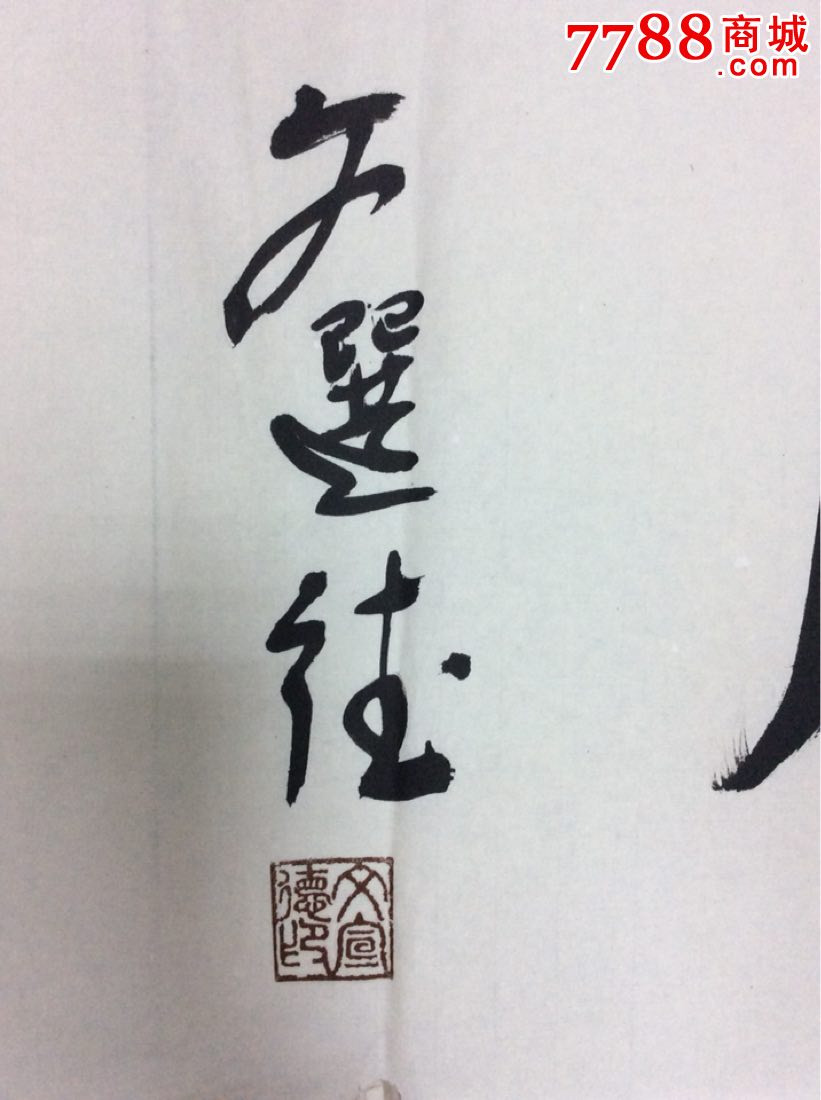 7788商城
.com
文選德
文宣
德印